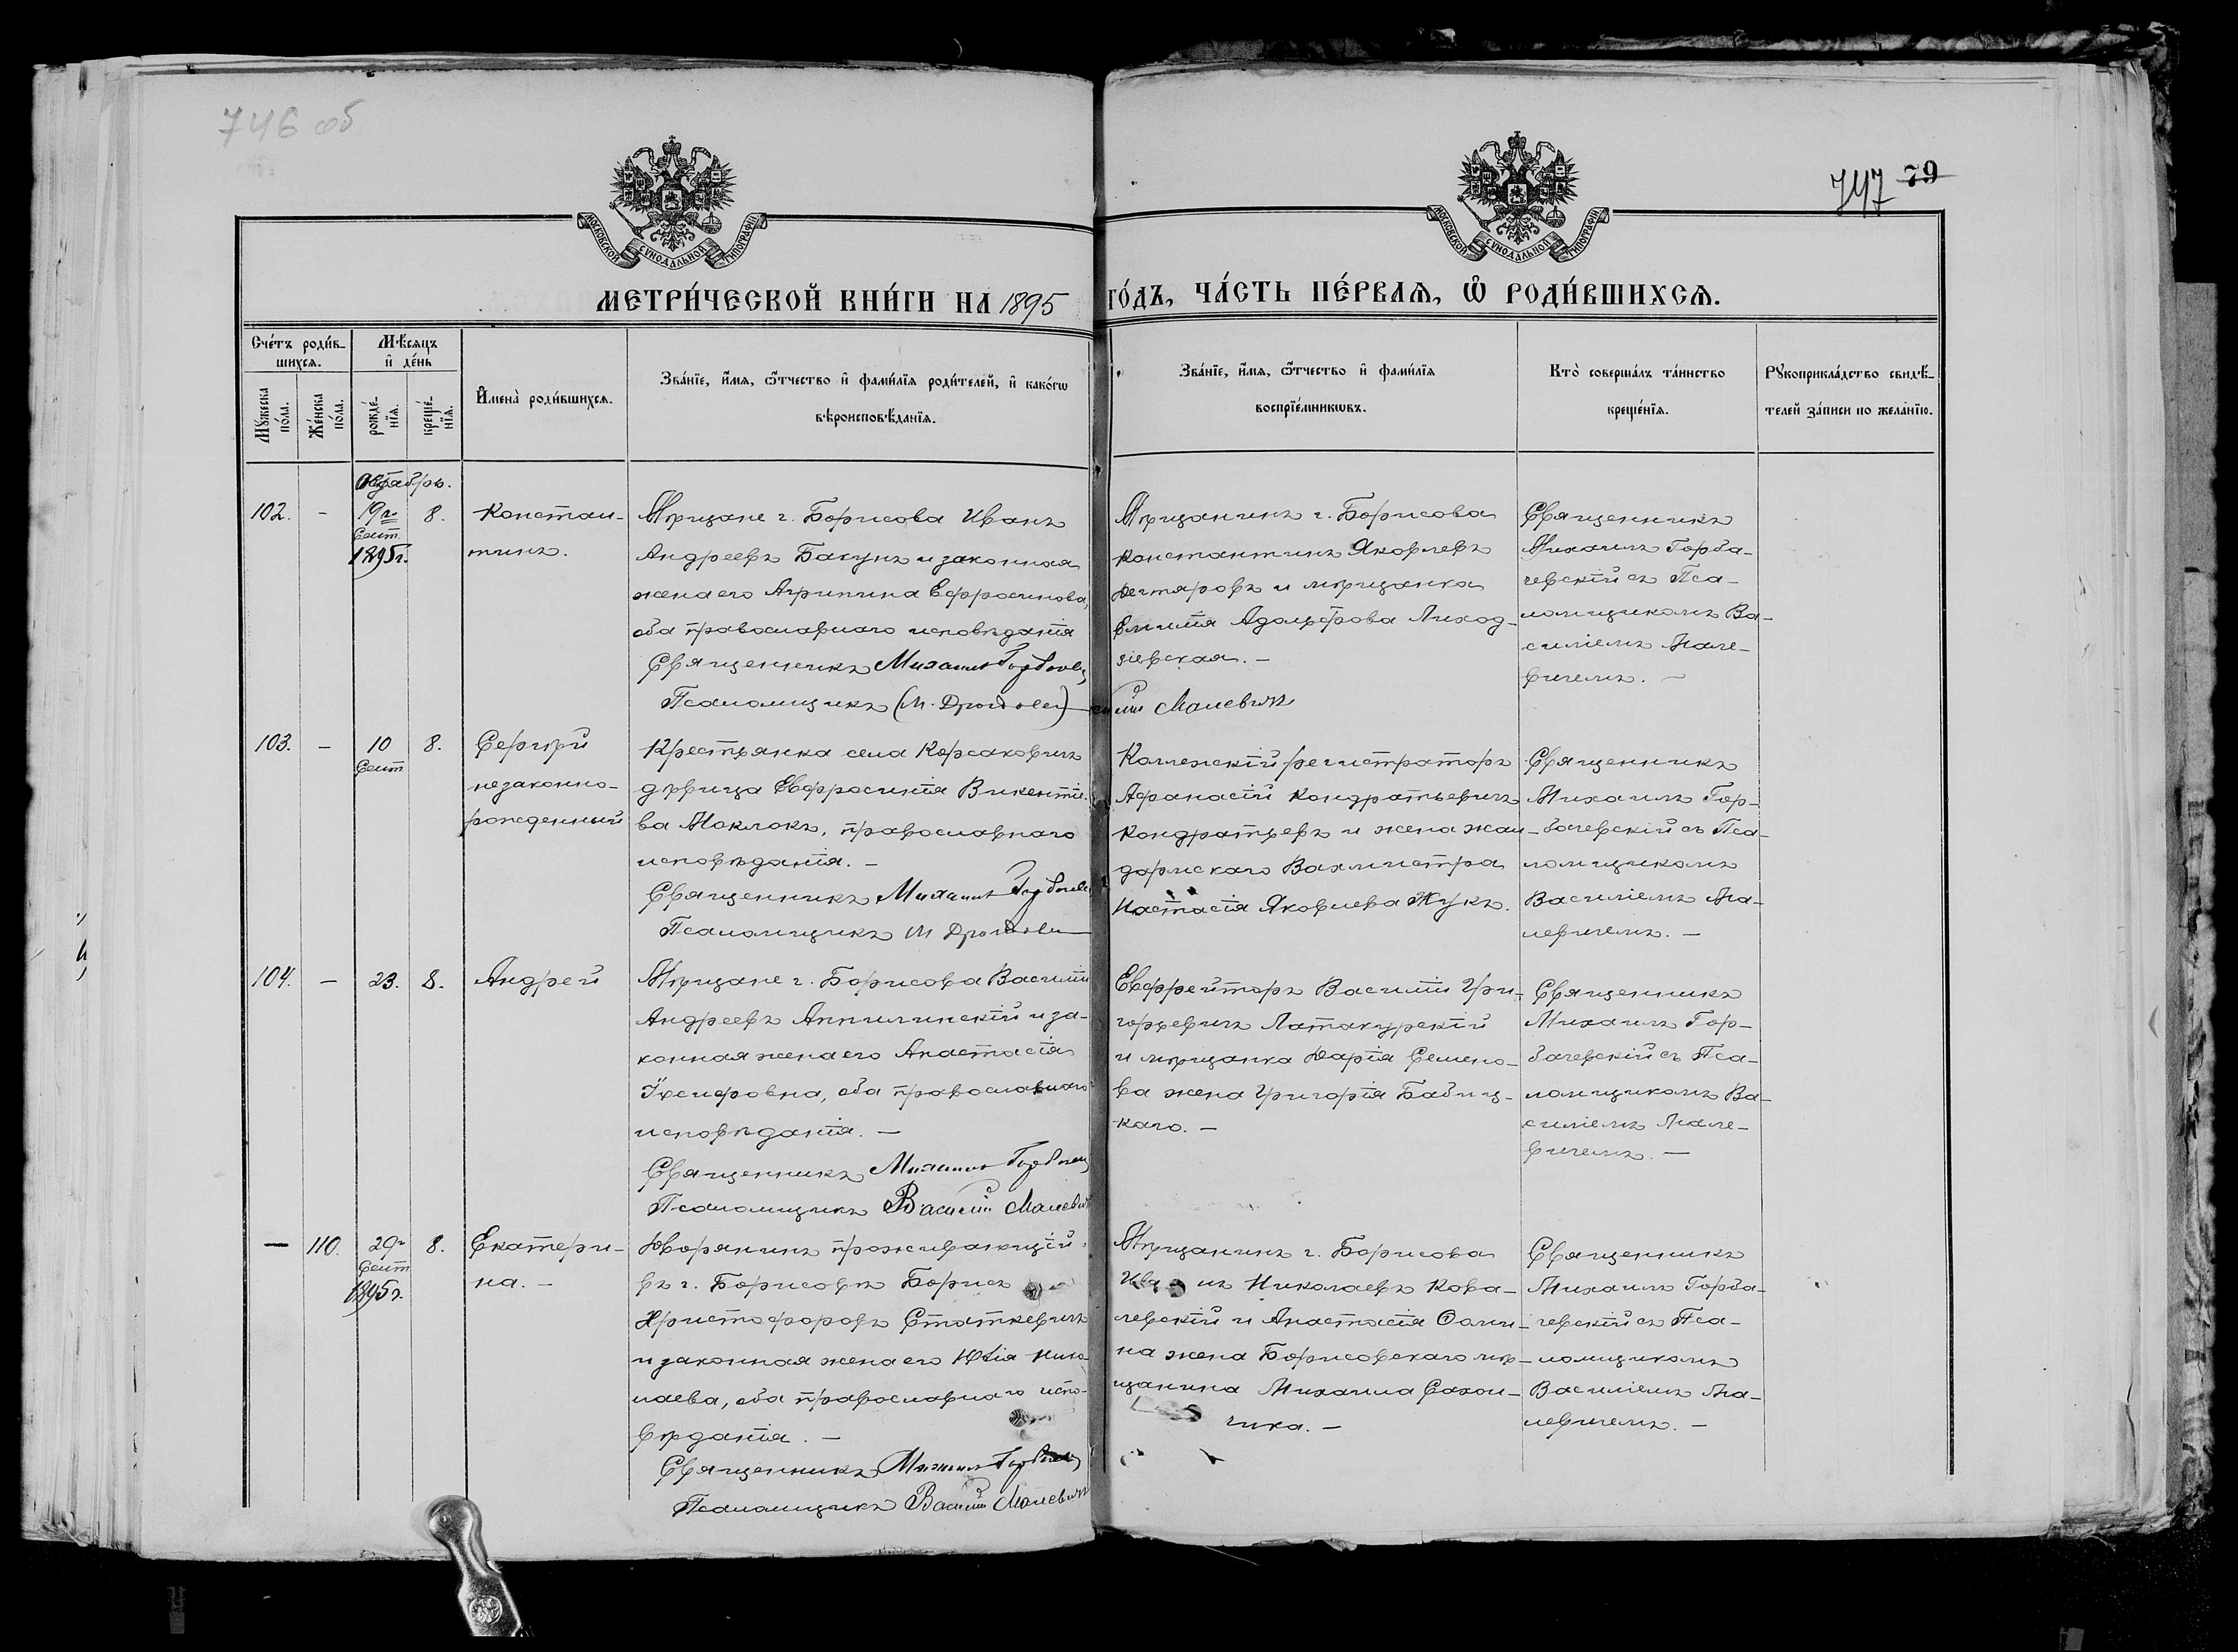 746 об
747 79
МОСКОВСКОЙ СѴНОДАЛЬНОЙ ТИПОГРАФІИ
МОСКОВСКОЙ СѴНОДАЛЬНОЙ ТИПОГРАФІИ
МЕТРИ́ЧЕСКОЙ КНИ́ГИ НА 1895 ГО́ДЪ, ЧА́СТЬ ПЕ́РВАѦ, Ѽ РОДИ́ВШИХСѦ.
Сче́тъ роди́в-
шихсѧ.
Мѣ́сѧцъ
и҆ де́нь
Мꙋжеска по́ла.
Же́нска по́ла.
рожде́-
нїѧ.
креще́-
нїѧ.
И҆мена̀ роди́вшихсѧ.
Зва́нїе, и҆́мѧ, ѻ҆́тчество и҆ фами́лїѧ роди́телей, и҆ како́гѡ
вѣроисповѣ́данїѧ.
Зва́нїе, и҆́мѧ, ѻ҆́тчество и҆ фами́лїѧ
воспрїе́мникѡвъ.
Кто̀ соверша́лъ та́инство
креще́нїѧ.
Рꙋкоприкла́дство свидѣ́-
телей за́писи по жела́нїю.
Октябрь.
102. - 19го 8.
Сент.
1895г.
Констан-
тинъ.
Мѣщане г. Борисова Иванъ
Андреевъ Бакунъ и законная
жена его Агрипина Ефросинова,
оба православнаго исповѣданія
Священникъ Михаилъ Горбачевскій
Псаломщикъ (М. Дроздовъ) Василій Малевичъ
Мѣщанинъ г. Борисова
Константинъ Яковлевъ
Дегтяровъ и мѣщанка
Емилія Адольфова Лиход-
зіевская. -
Священникъ
Михаилъ Горба-
чевскій съ Пса-
ломщикомъ Ва-
силіемъ Мале-
вичемъ. -
103. - 10 8.
Сент
Сергѣй
незаконно-
рожденный
Крестьянка села Корсаковичъ
дѣвица Евфросинія Викентіе-
ва Моклокъ, православнаго
исповѣданія. -
Священникъ Михаилъ Горбачев
Псаломщикъ М Дроздов
Коллежскій регистраторъ
Афанасій Кондратьевичъ
Кондратьевъ и жена жан-
дармскаго Вахмистра
Настасія Яковлева Жукъ.
Священникъ
Михаилъ Гор-
бачевскій съ Пса-
ломщикомъ
Василіемъ Ма-
левичемъ. -
104. - 23. 8.
Андрей
Мѣщане г. Борисова Василій
Андреевъ Анпилинскій и за-
конная жена его Анастасія
оба православнаго
исповѣданія. -
Священникъ Михаилъ Горбачев
Псаломщикъ Василій Малевичъ
Ефрейторъ Василій Гри-
горьевичъ Латакурскій
и мѣщанка Дарія Семено-
ва жена Григорія Бабиц-
каго. -
Священникъ
Михаилъ Гор-
бачевскій съ Пса-
ломщикомъ Ва-
силіемъ Мале-
вичемъ. -
- 110. 29г 8.
Сент
1895г.
Екатери-
на. -
Дворянинъ проживающій
въ г. Борисовѣ Борисъ
Христофоровъ Статкевичъ
и законная жена его Юлія Нико-
лаева, оба православнаго испо-
вѣданія. -
Священникъ Михаилъ Горбачев
Псаломщикъ Василій Малевичъ
Мѣщанинъ г. Борисова
Иванъ Николаевъ Кова-
левскій и Анастасія Ѳоми-
на жена Борисовскаго мѣ-
щанина Михаила Сахон-
чика. -
Священникъ
Михаилъ Горба-
чевскій съ Пса-
ломщикомъ
Василіемъ Ма-
левичемъ. -